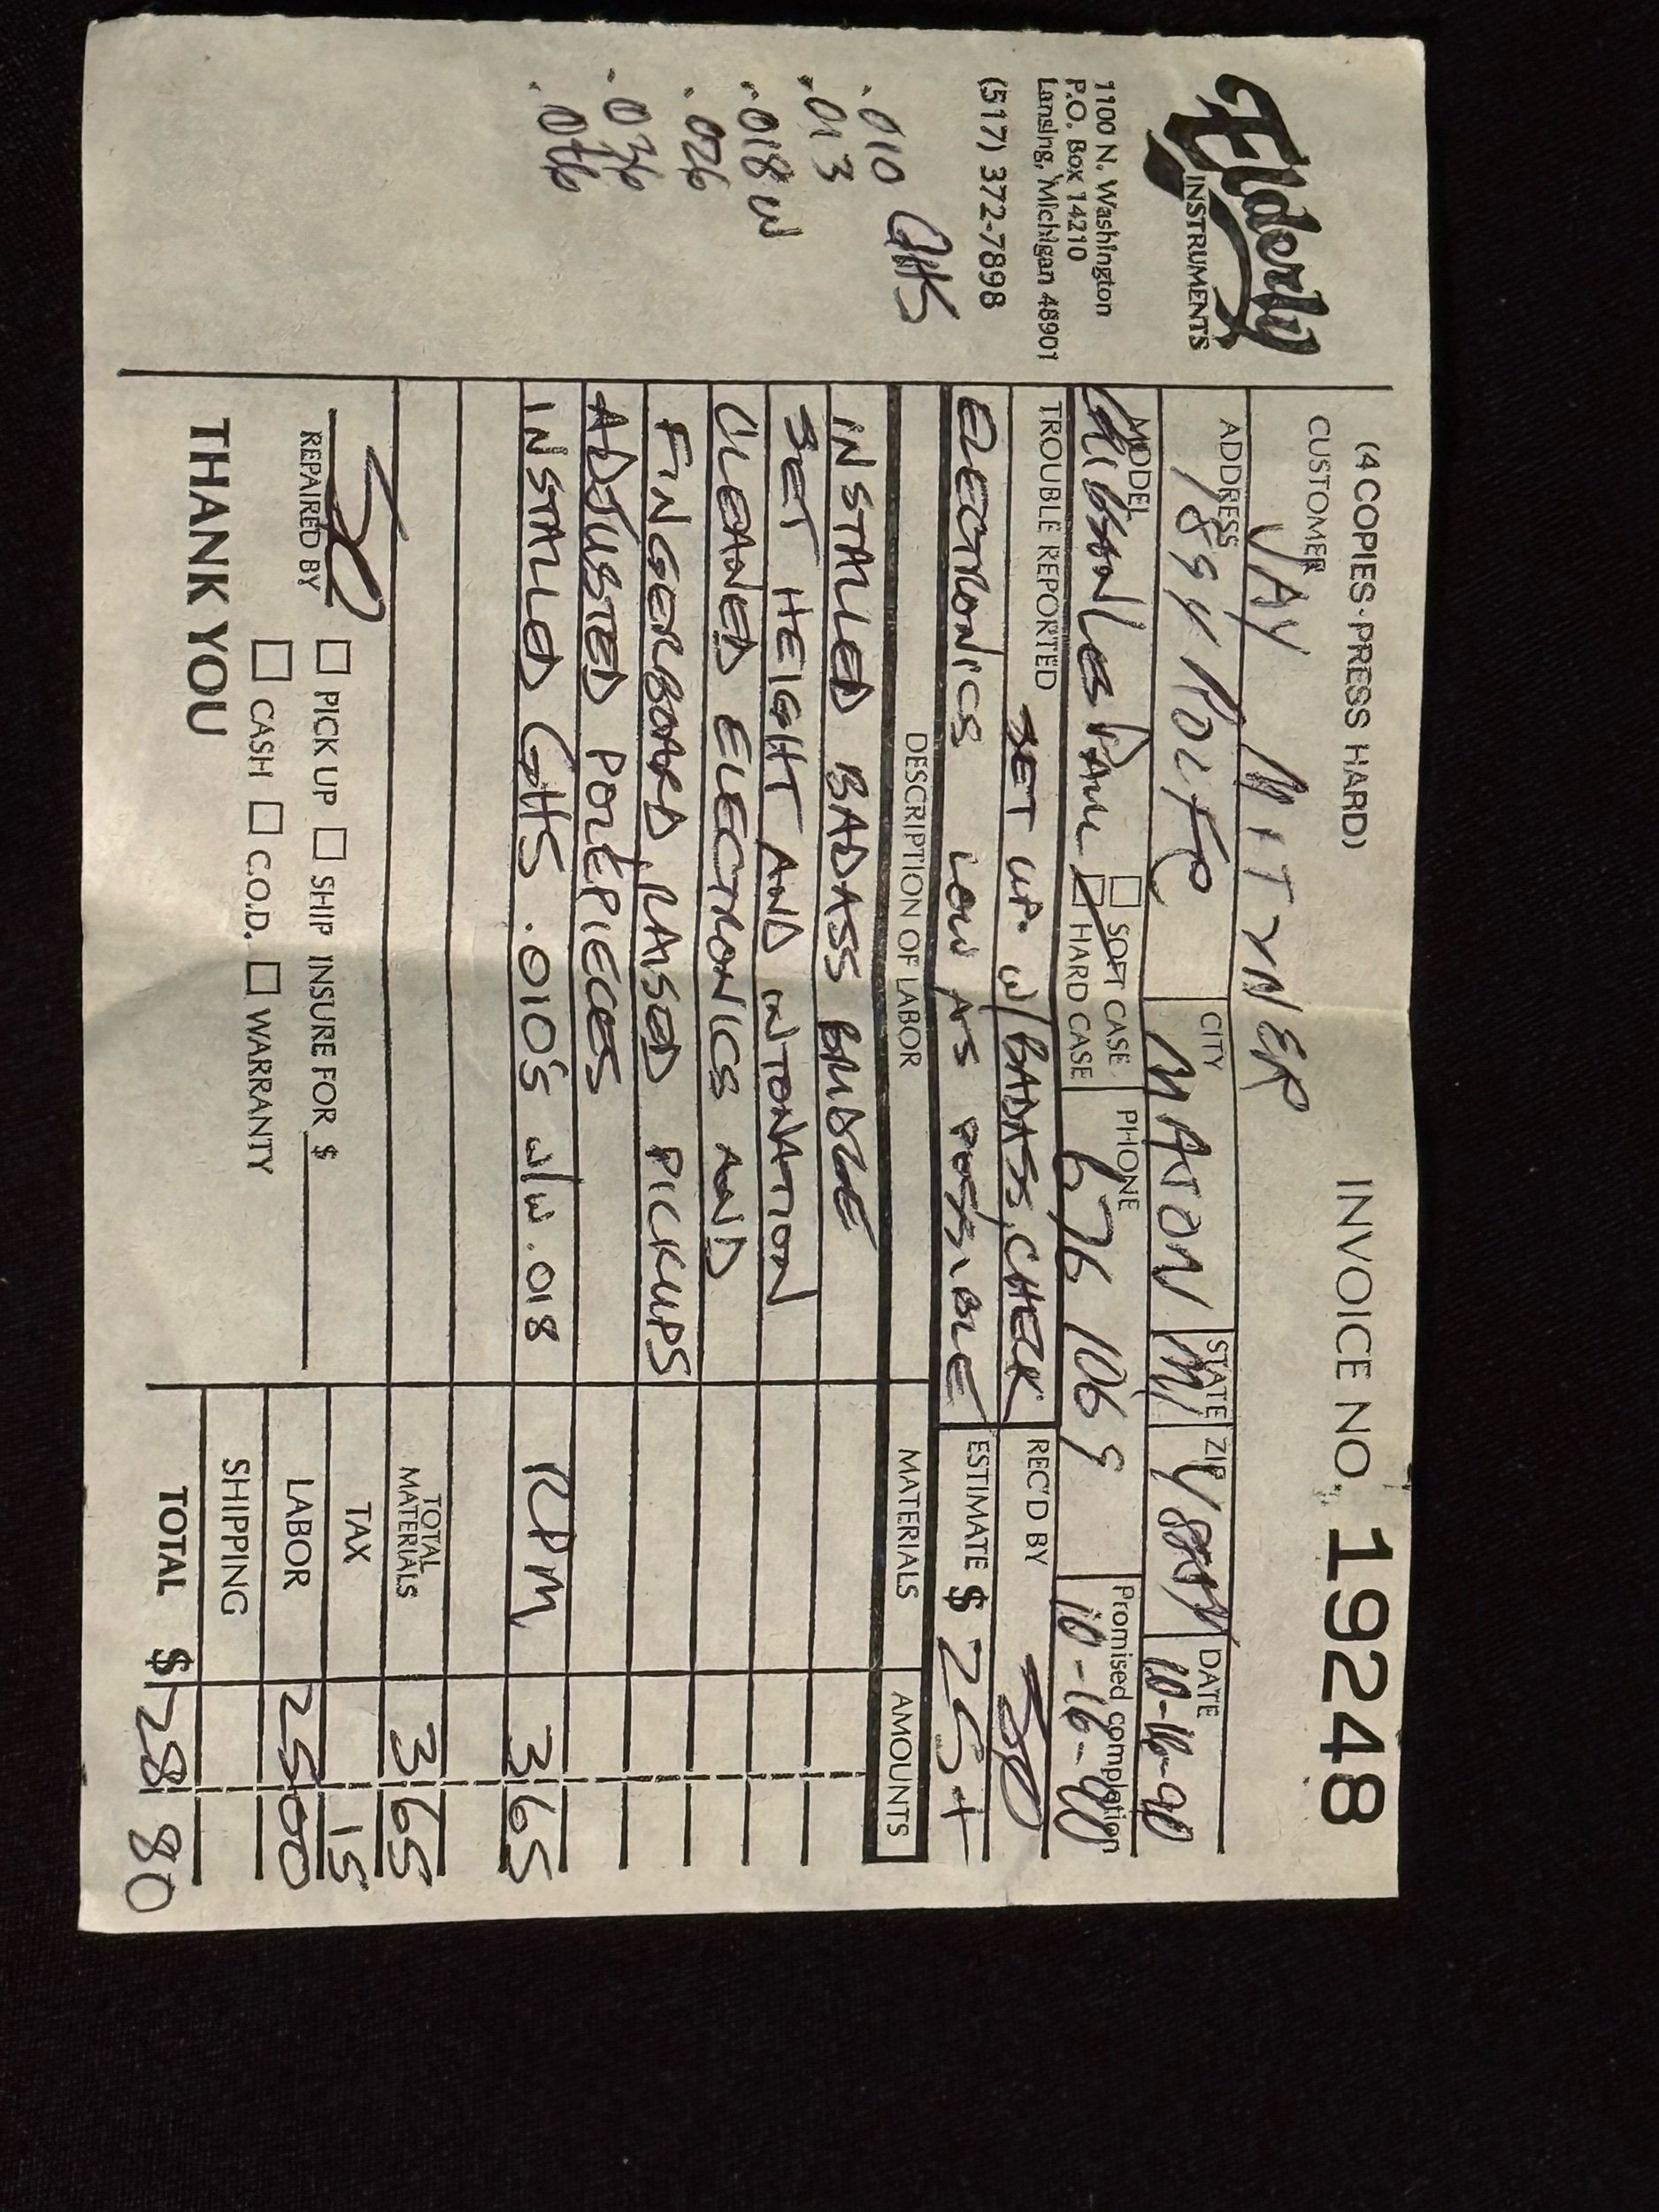 Elderly
INSTRUMENTS
1100 N. Washington
P.O. Box 14210
Lansing, Michigan 48901
(517) 372-7898
GHS
.010
.013
.018 W
.026
.036
.046
(4 COPIES-PRESS HARD)
INVOICE NO. 19248
CUSTOMER JAY
ADDRESS
CITY
STATE MI
ZIP
DATE 10-16-90
MODEL Gibson Les Paul
SOFT CASE
HARD CASE
PHONE 676 1069
Promised completion 10-16-90
TROUBLE REPORTED SET UP. W/BADASS, CHECK
REC'D BY
ELECTRONICS LOW AS POSSIBLE
ESTIMATE $ 25+
DESCRIPTION OF LABOR
MATERIALS
AMOUNTS
INSTALLED BADASS BRIDGE
SET HEIGHT AND INTONATION
CLEANED ELECTRONICS AND
FINGERBOARD, RAISED PICKUPS
ADJUSTED POLEPIECES
INSTALLED GHS .010'S W/W.018 RPM 3 65
TOTAL MATERIALS 3 65
TAX 15
LABOR 25 00
SHIPPING
TOTAL $ 28 80
REPAIRED BY
PICK UP SHIP INSURE FOR $
CASH C.O.D. WARRANTY
THANK YOU